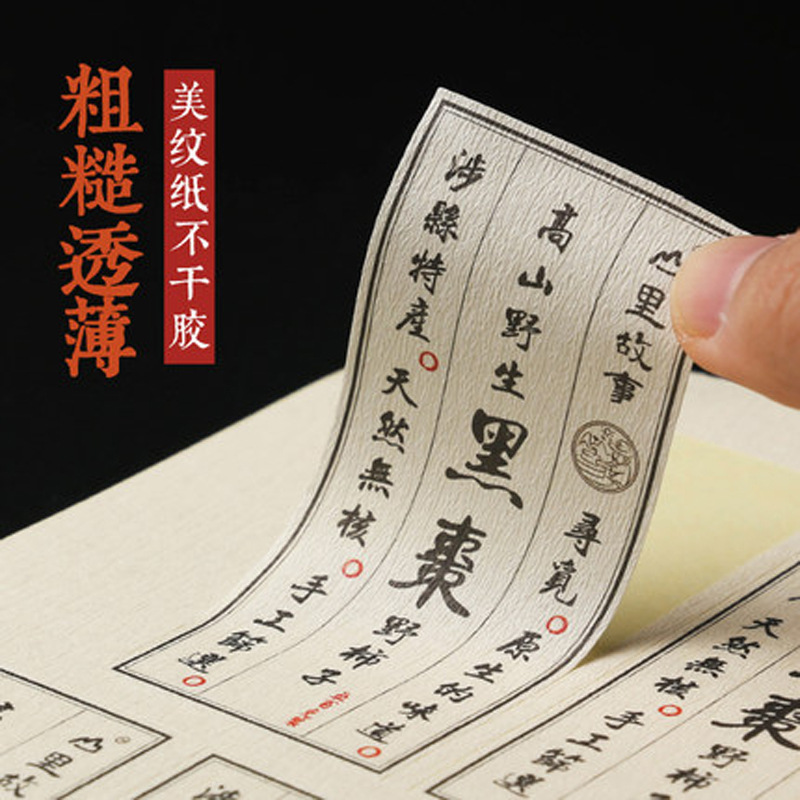 粗糙透薄
美纹纸不干胶
山里故事 尋覓○原生的味道○
高山野生黑棗野柿子
涉縣特產○天然無核○手工篩選○
棗野柿
天然無核○手工篩選
山里故
涉